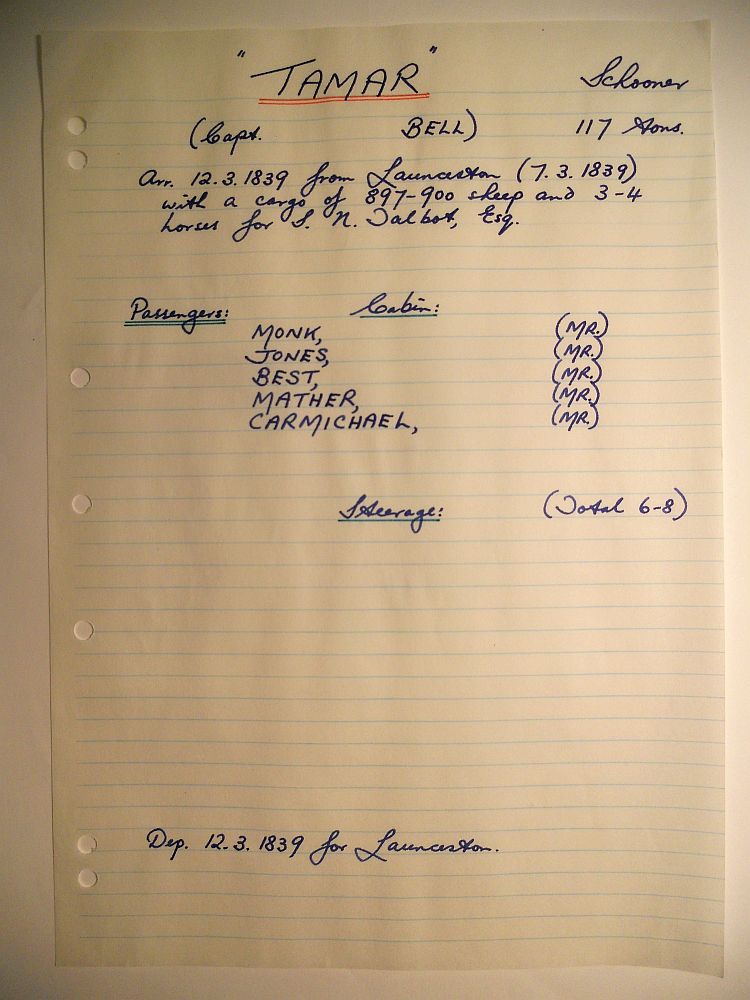 "TAMAR" Schooner
(Capt. BELL) 117 tons.
Arr. 12.3.1839 from Launceston (7.3.1839)
with a cargo of 897-900 sheep and 3-4
horses for S. N. Talbot, Esq.
Passengers: Cabin:
MONK, (MR.)
JONES, (MR.)
BEST, (MR.)
MATHER, (MR.)
CARMICHAEL, (MR.)
Steerage: (Total 6-8)
Dep. 12.3.1839 for Launceston.